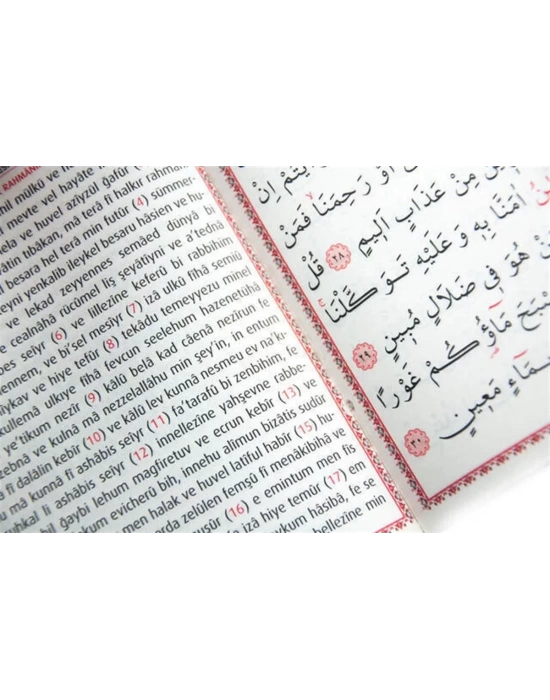 RAHMAN
mülkü ve
meyte vel hayâte
ve huvel azîyzül ğafûr
tıbâkan, mâ terâ fî halkır rahmân
besara hel terâ min futûr (4) sümmer-
yenkalib ileykel besaru hâsien ve hu-
ve lekad zeyyennes semâed dünyâ bi
cealnâhâ rücûmel liş şeyâtıyni ve a'tednâ
seıyr (6) ve lillezîne keferû bi rabbihim
ve bi'sel mesıyr (7) izâ ulkû fîhâ semiû
ve hiye tefûr (8) tekâdu temeyyezu minel
kullemâ ulkıye fîhâ fevcun seelehum hazenetühâ
e'tikum nezîr (9) kâlû belâ kad câenâ nezîrun fe
ve kulnâ mâ nezzelallâhu min şey'in, in entum
fî dalâlin kebîr (10) ve kâlû lev kunnâ nesmeu ev na'kı-
mâ kunnâ fî ashâbis seıyr (11) fa'tarafû bi zenbihim, fe
li ashâbis seıyr (12) innellezîne yahşevne rabbe-
ğaybi lehum mağfiretuv ve ecrun kebîr (13) ve
evicherû bih, innehu alîmun bizâtis sudûr
men halak ve huvel latîful habîr (15) hu-
zelûlen femşû fî menâkibihâ ve
(16) e emintum men fis
izâ hiye temûr (17) em
hâsibâ, fe se
min
اِنْ
اَوْ رَحِمَنَاۙ فَمَنْ
مِنْ عَذَابٍ اَلٖيمٍ ٢٨ قُلْ
اٰمَنَّا بِهٖ وَعَلَيْهِ تَوَكَّلْنَاۚ
هُوَ فٖى ضَلَالٍ مُبٖينٍ ٢٩
مَٓاؤُ۬كُمْ غَوْرًا
مَعٖينٍ ٣٠